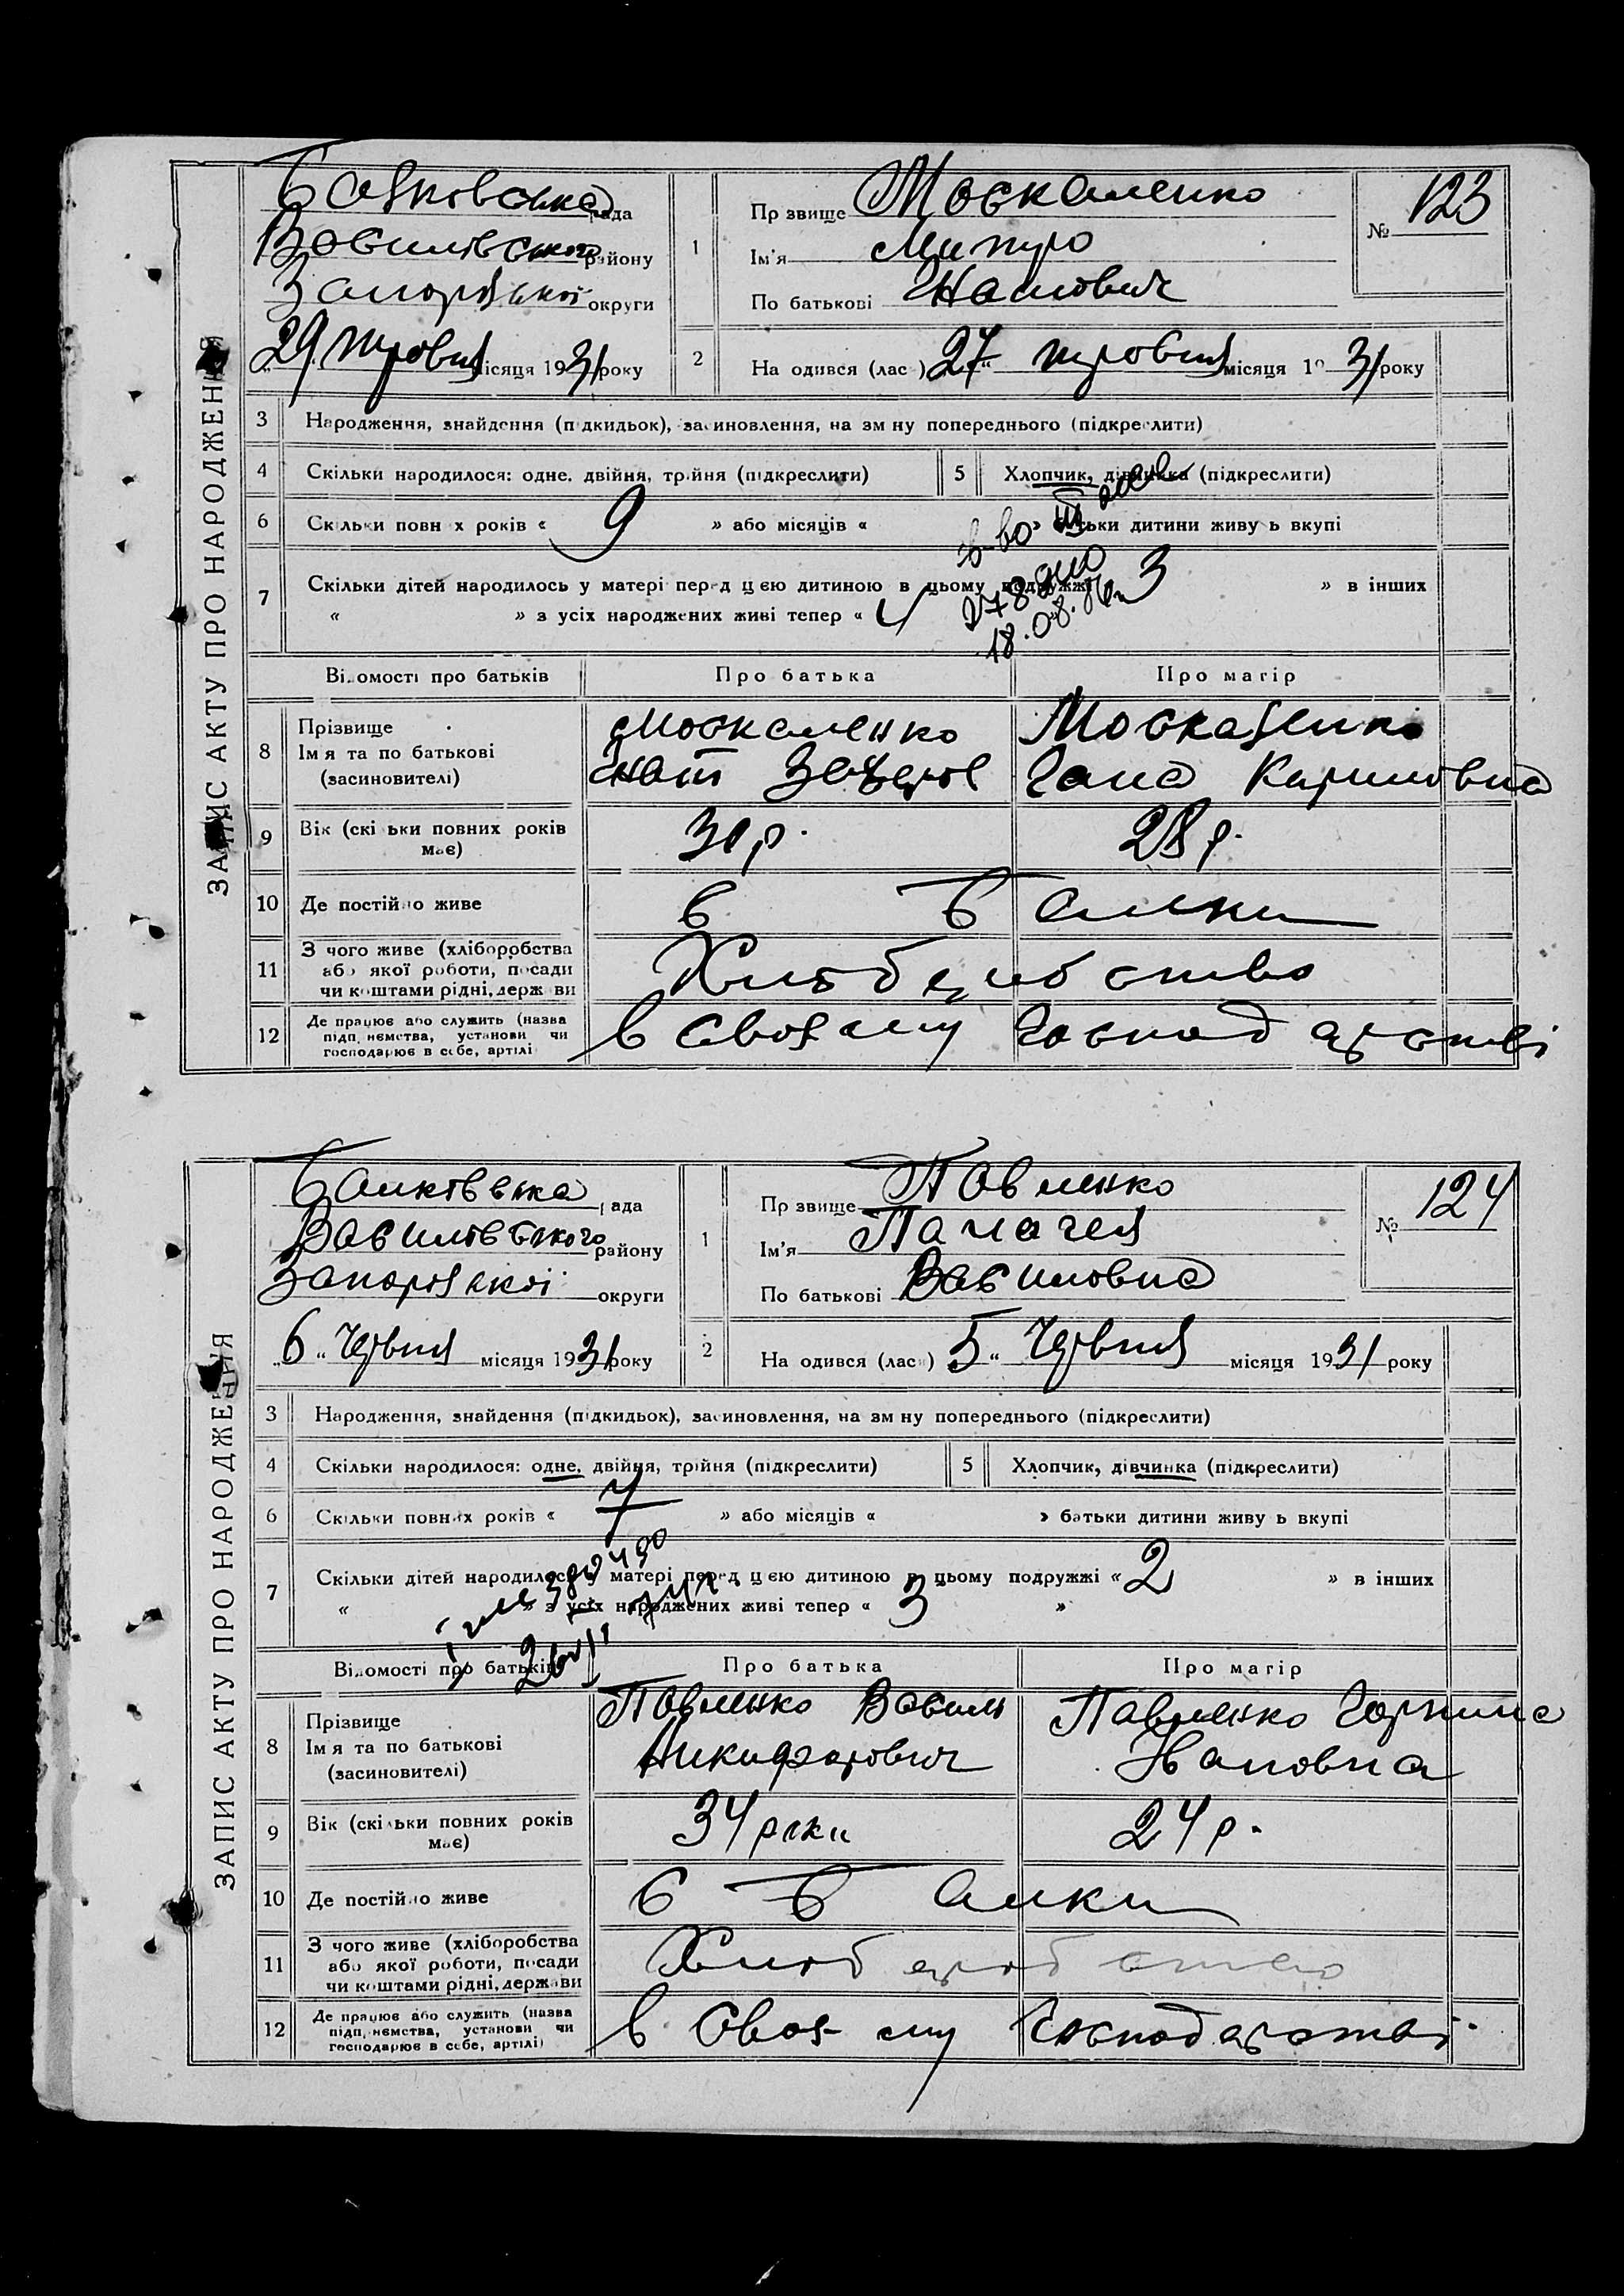 ЗАПИС АКТУ ПРО НАРОДЖЕННЯ
Балковська рада
Василівського району
Запорізької округи
29 травня місяця 1931 року
1
Пр звище Москаленко
Ім'я Митро
По батькові
№ 123
2
На одився (лас ) 27 " травня місяця 1 31 року
3 Народження, знайдення (підкидьок), засиновлення, на зм ну попереднього (підкреслити)
4 Скільки народилося: одне. двійня, трійня (підкреслити)
5 Хлопчик, дівчинка (підкреслити)
6 Скільки повн х років « 9 » або місяців « » батьки дитини живу ь вкупі
7 Скільки дітей народилось у матері перед цією дитиною в цьому подружжі 3 » в інших
« » з усіх народжених живі тепер « 4
18.08.
Відомості про батьків
Про батька
Про матір
8 Прізвище
Ім я та по батькові
(засиновителі)
Москаленко
Москаленко
Гана
9 Вік (скі ьки повних років має)
28 р.
10 Де постійно живе
в Балки
11 З чого живе (хліборобства
або якої роботи, посади
чи коштами рідні, держ ви
Хліборобство
12 Де працює або служить (назва
підп, нємства, установи чи
господарює в себе, артілі
в своєму господарстві
ЗАПИС АКТУ ПРО НАРОДЖЕННЯ
Балківська рада
Василівського району
Запорізької округи
" 6 " Червня місяця 1931 року
1
Пр звище Павленко
Ім'я
По батькові Василовна
№ 124
2
На одився (лась) 5 " Червня місяця 1931 року
3 Народження, знайдення (підкидьок), засиновлення, на зм ну попереднього (підкреслити)
4 Скільки народилося: одне, двійня, трійня (підкреслити)
5 Хлопчик, дівчинка (підкреслити)
6 Скільки повних років « 7 » або місяців « » батьки дитини живу ь вкупі
7 Скільки дітей народилось у матері перед цією дитиною в цьому подружжі « 2 » в інших
« » з усіх народжених живі тепер « 3 »
Відомості про батьків
Про батька
Про матір
8 Прізвище
Ім я та по батькові
(засиновителі)
Павленко Василь
Никифорович
Павленко
9 Вік (скільки повних років має)
34 роки
24 р.
10 Де постійно живе
в Балки
11 З чого живе (хліборобства
або якої роботи, посади
чи коштами рідні, держави
Хліборобство
12 Де працює або служить (назва
підп, нємства, установи чи
господарює в себе, артілі)
в своєму господарстві